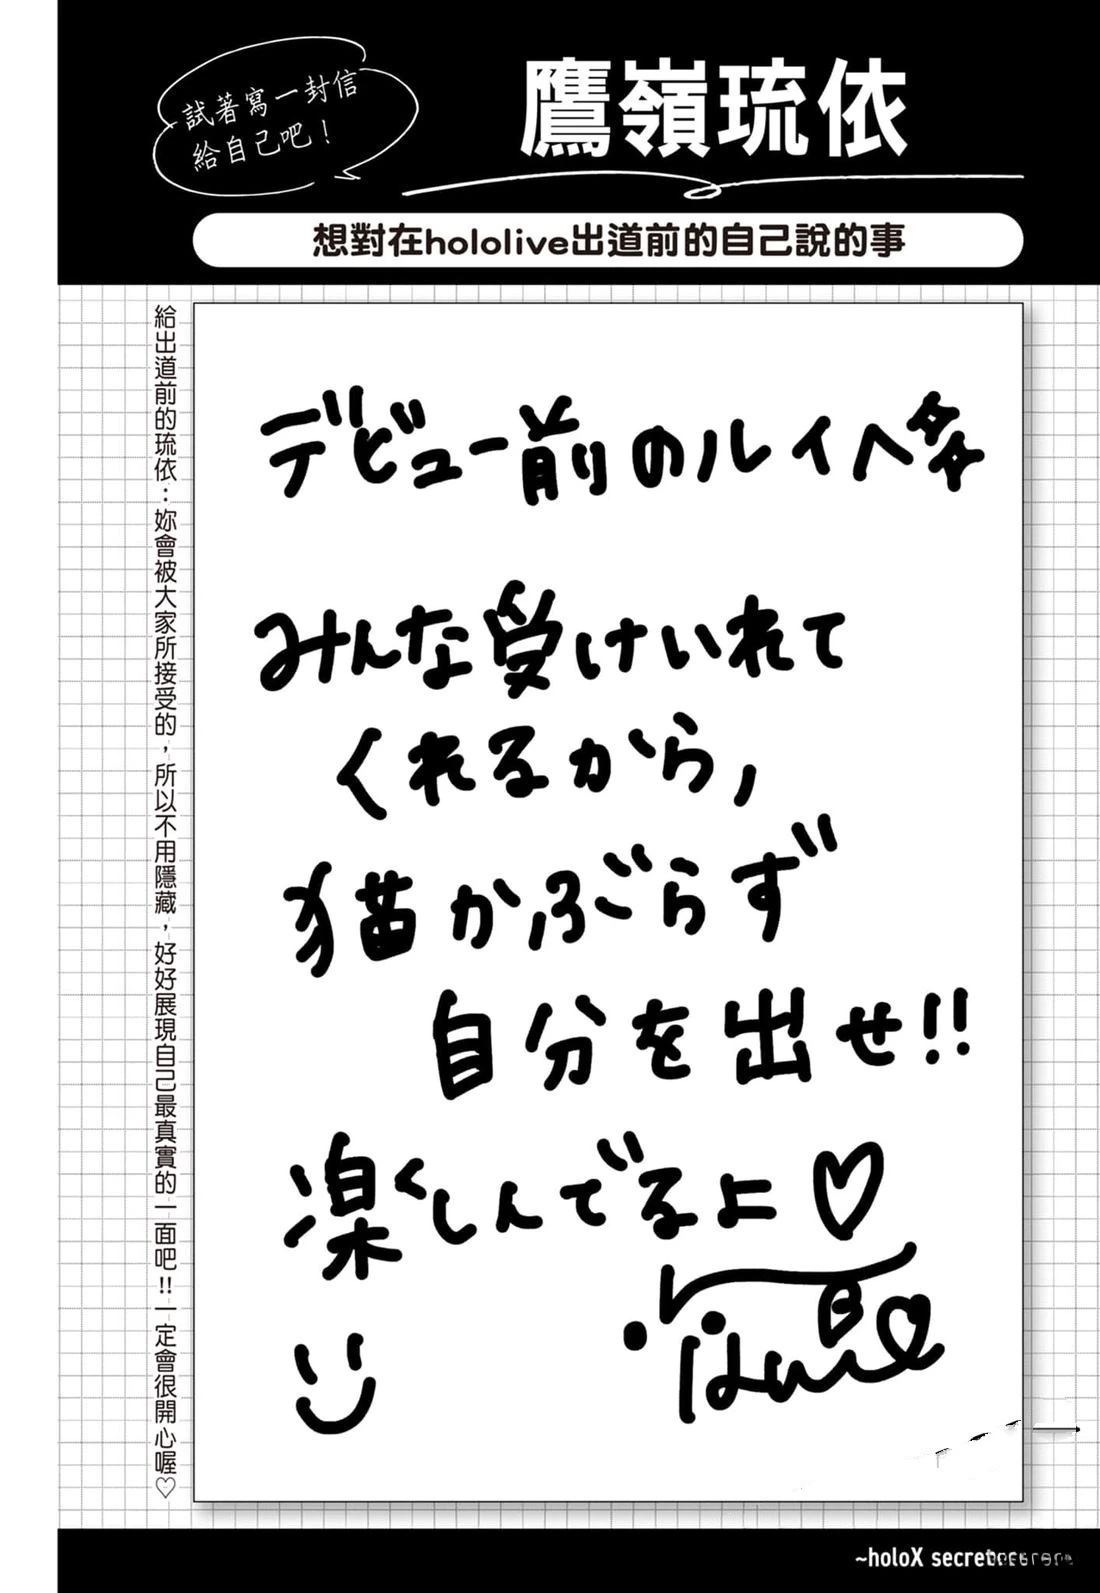 試著寫一封信
給自己吧！
鷹嶺琉依
想對在hololive出道前的自己說的事
給出道前的琉依：妳會被大家所接受的，所以不用隱藏，好好展現自己最真實的一面吧!!一定會很開心喔♡
デビュー前のルイへ
みんな受けいれて
くれるから,
猫かぶらず
自分を出せ!!
楽しんでるよ♡
~holoX secret